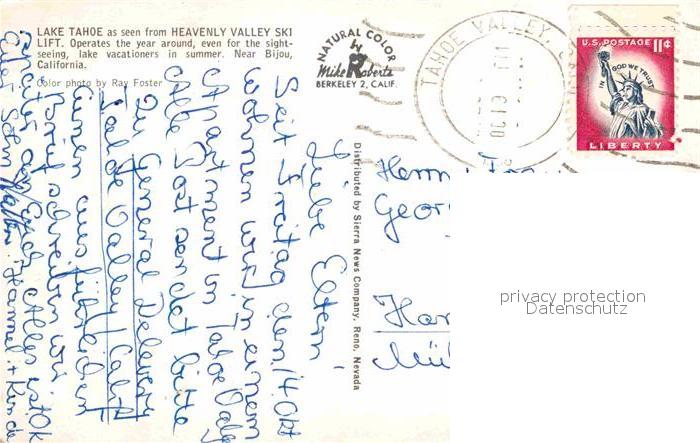 LAKE TAHOE as seen from HEAVENLY VALLEY SKI
LIFT. Operates the year around, even for the sight-
seeing, lake vacationers in summer. Near Bijou,
California.
Color photo by Ray Foster
NATURAL COLOR
by
Mike Roberts
BERKELEY 2, CALIF.
TAHOE VALLEY
U.S. POSTAGE 11¢
IN GOD WE TRUST
LIBERTY
Distributed by Sierra News Company, Reno, Nevada
Liebe Eltern!
Seit Freitag den 14. Okt
wohnen wir in einem
Apartment in Tahoe Valley
Alle Post sendet bitte
zu General Delevery
Tahoe Valley / Calif
Einen ausführlichen
Brief schreiben wir
später an Euch. Alles ist OK
Euer Sohn Walter. Hannel. + Kinder
Herrn
Geor
privacy protection
Datenschutz